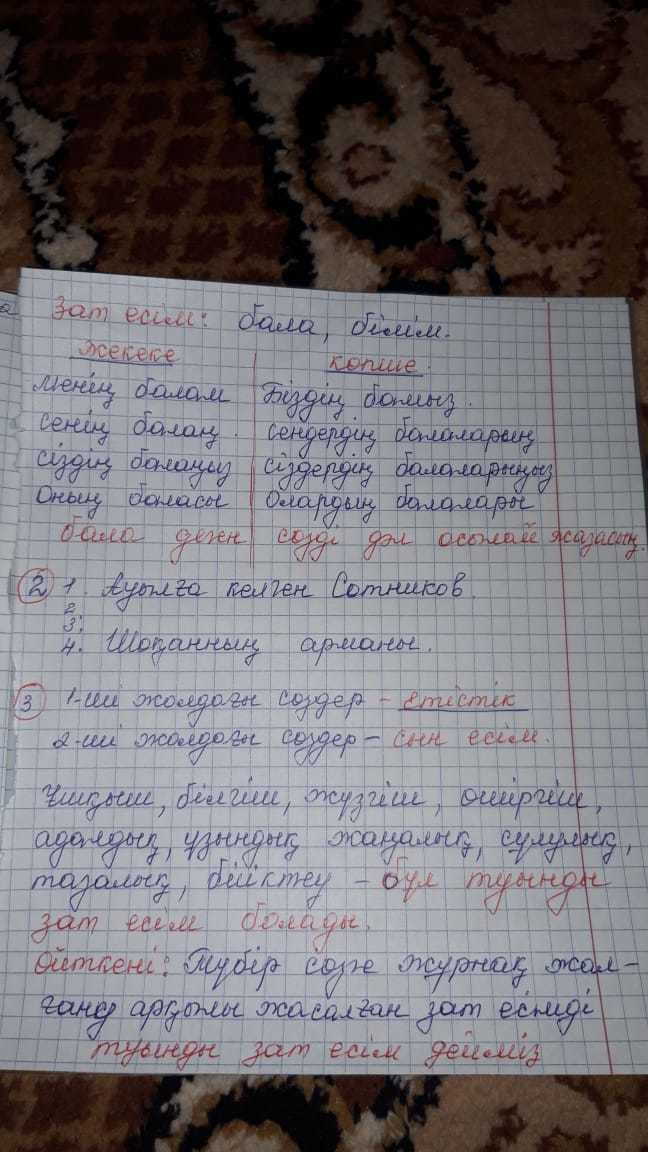 а
Зат есім: бала, білім.
жекеке көпше.
Менің балам Біздің баламыз.
сенің балаң. сендердің балаларың
сіздің балаңыз сіздердің балаларыңыз
Оның баласы Олардың балалары
бала деген сөзді дәл осылай жазасың.
2 1. Ауылға келген Сотников.
2.
3.
4. Шоқанның арманы.
3 1-ші жолдағы сөздер - етістік
2-ші жолдағы сөздер - сын есім.
Ұшқыш, білгіш, жүзгіш, өшіргіш,
адалдық, ұзындық жаңалық, сұлулық,
тазалық, биіктеу - бұл туынды
зат есім болады.
Өйткені: Түбір сөзге жұрнақ жал-
ғану арқылы жасалған зат есімді
туынды зат есім дейміз